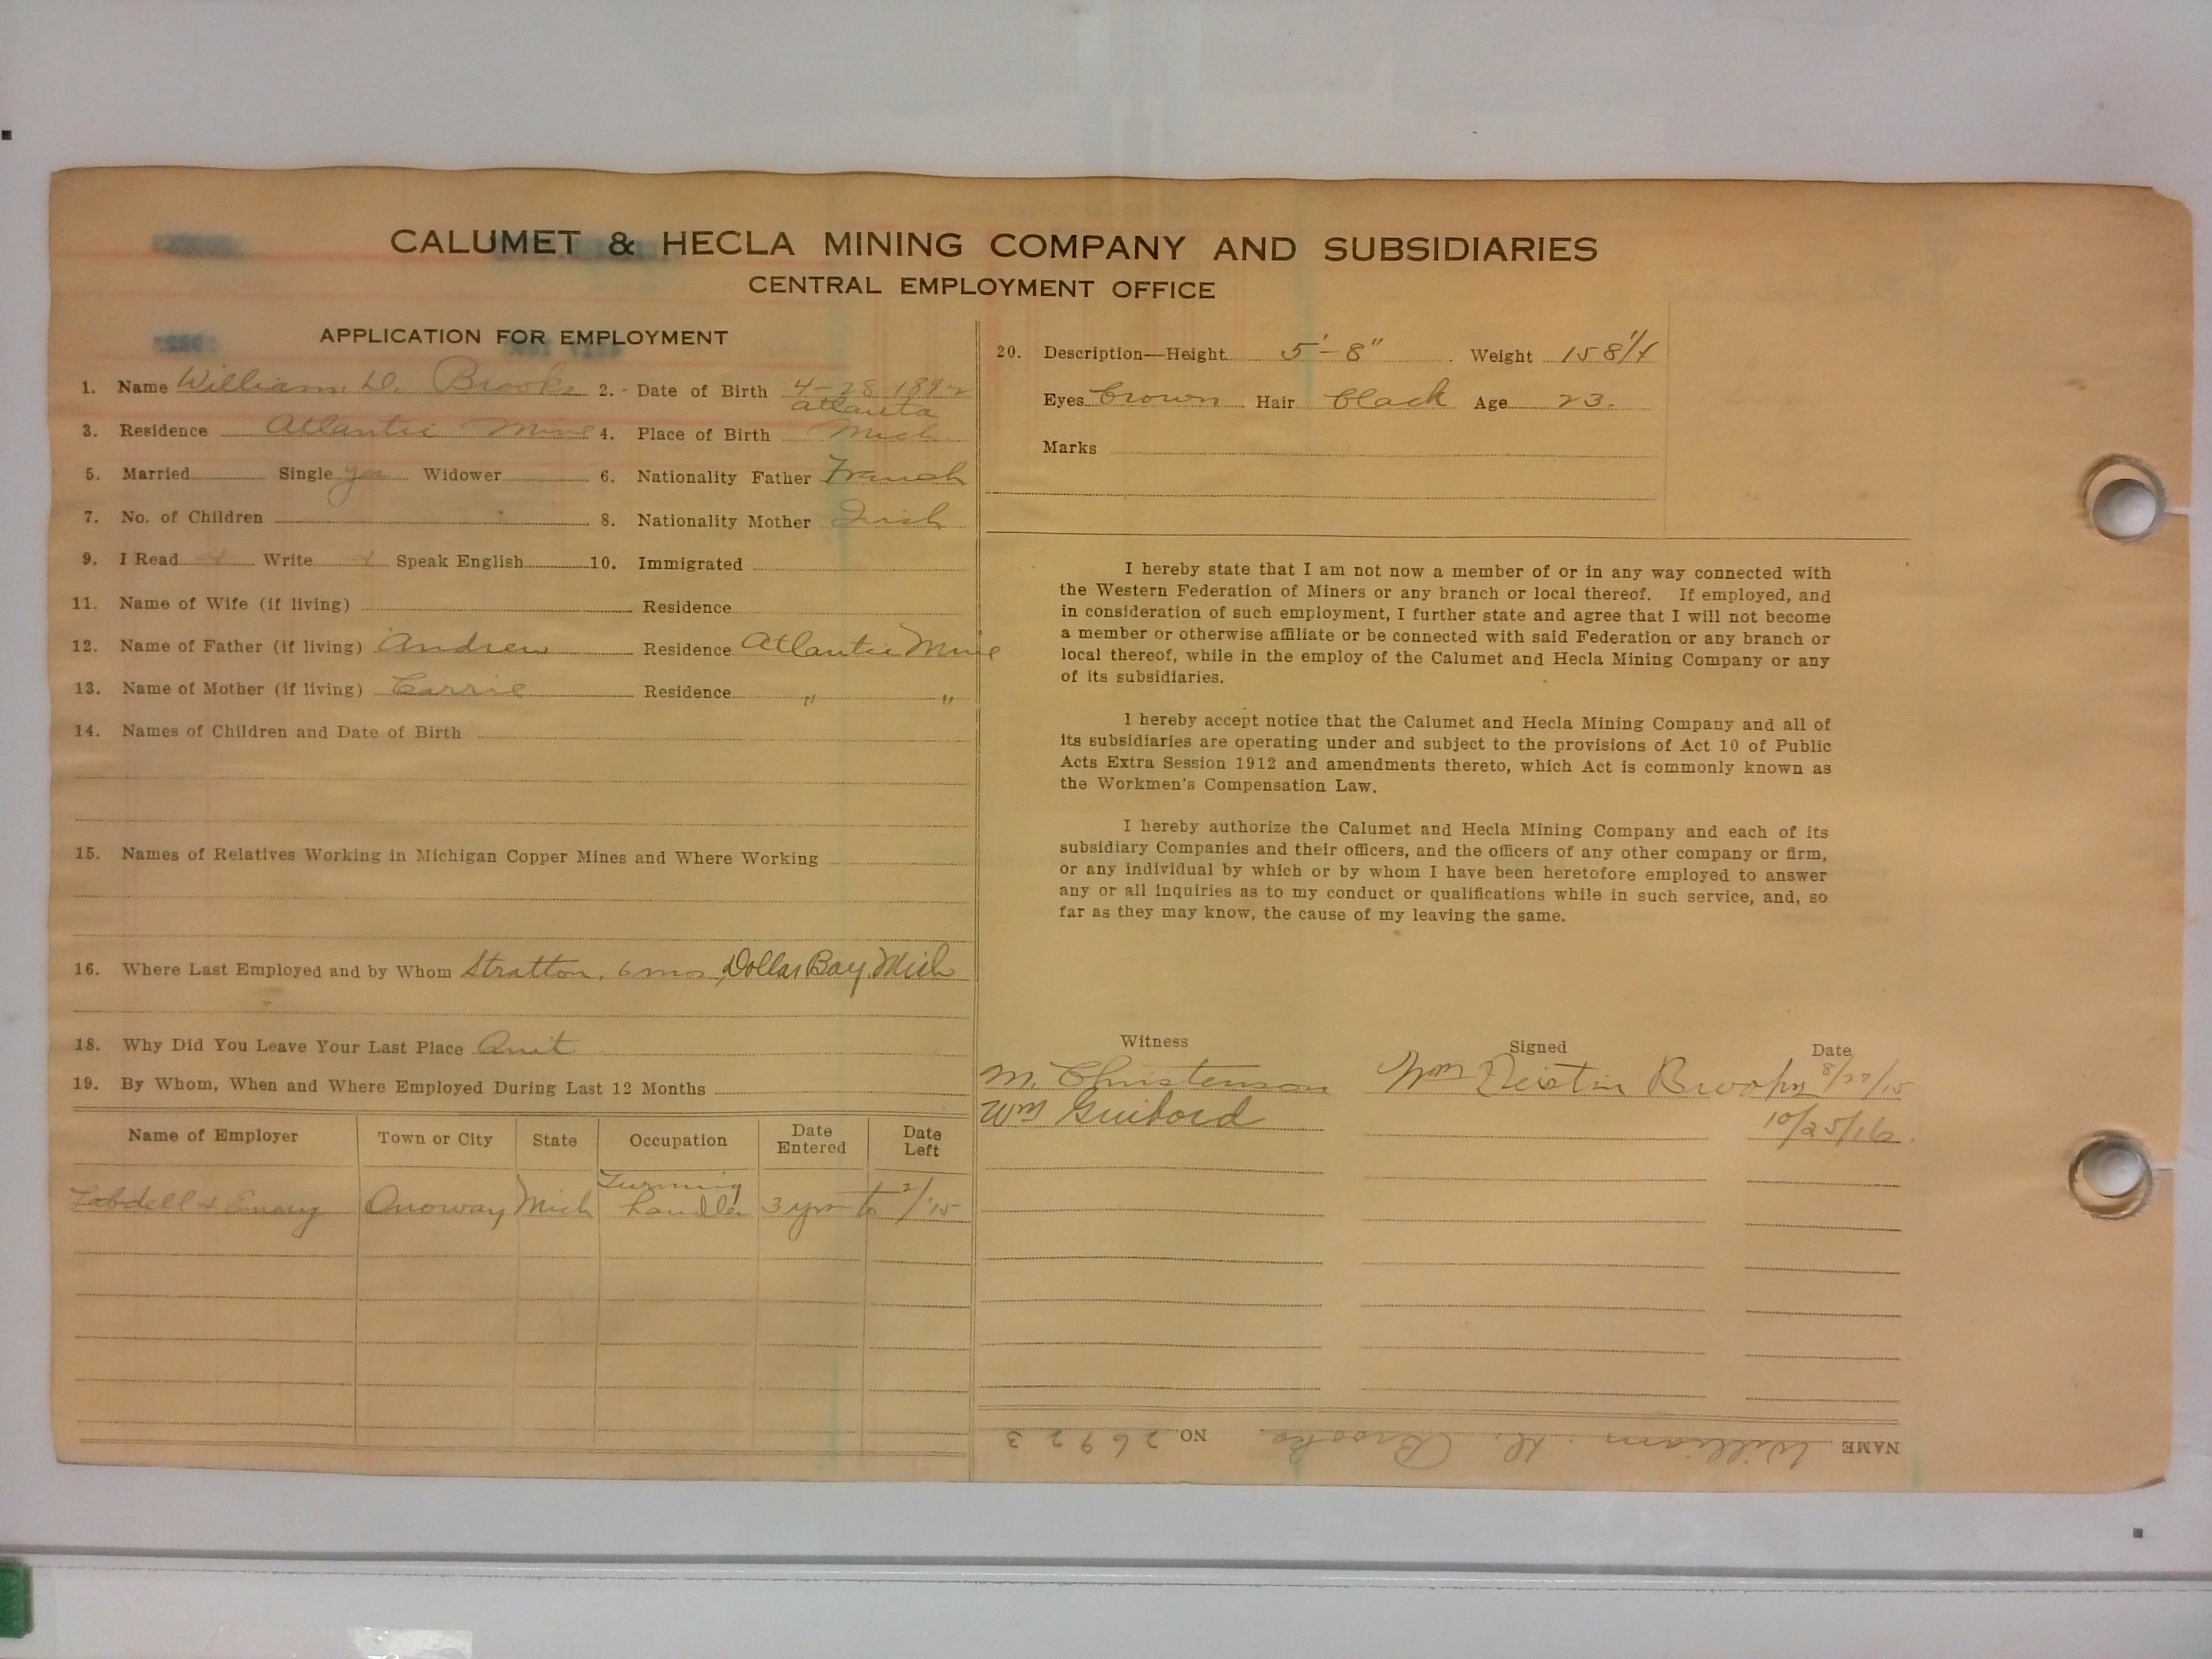 CALUMET & HECLA MINING COMPANY AND SUBSIDIARIES
CENTRAL EMPLOYMENT OFFICE
APPLICATION FOR EMPLOYMENT
1. Name William D. Brooks 2. Date of Birth 4-28-1892
3. Residence Atlantic Mine 4. Place of Birth Atlanta Mich
5. Married Single yes Widower 6. Nationality Father French
7. No. of Children 8. Nationality Mother Irish
9. I Read Write Speak English 10. Immigrated
11. Name of Wife (if living) Residence
12. Name of Father (if living) Andrew Residence Atlantic Mine
13. Name of Mother (if living) Carrie Residence " "
14. Names of Children and Date of Birth
15. Names of Relatives Working in Michigan Copper Mines and Where Working
16. Where Last Employed and by Whom Stratton, 6 mos, Dollar Bay, Mich
18. Why Did You Leave Your Last Place Quit
19. By Whom, When and Where Employed During Last 12 Months
Name of Employer Town or City State Occupation Date Entered Date Left
Lobdell & Emery Onoway Mich Turning handler 3 yrs to 2/'15
20. Description—Height 5'-8" Weight 158 1/4
Eyes brown Hair black Age 23.
Marks
I hereby state that I am not now a member of or in any way connected with
the Western Federation of Miners or any branch or local thereof. If employed, and
in consideration of such employment, I further state and agree that I will not become
a member or otherwise affiliate or be connected with said Federation or any branch or
local thereof, while in the employ of the Calumet and Hecla Mining Company or any
of its subsidiaries.
I hereby accept notice that the Calumet and Hecla Mining Company and all of
its subsidiaries are operating under and subject to the provisions of Act 10 of Public
Acts Extra Session 1912 and amendments thereto, which Act is commonly known as
the Workmen's Compensation Law.
I hereby authorize the Calumet and Hecla Mining Company and each of its
subsidiary Companies and their officers, and the officers of any other company or firm,
or any individual by which or by whom I have been heretofore employed to answer
any or all inquiries as to my conduct or qualifications while in such service, and, so
far as they may know, the cause of my leaving the same.
Witness Signed Date
M. Christenson Wm Brooks 8/27/15
Wm Guibord 10/25/16.
NAME William D. Brooks. NO. 26923